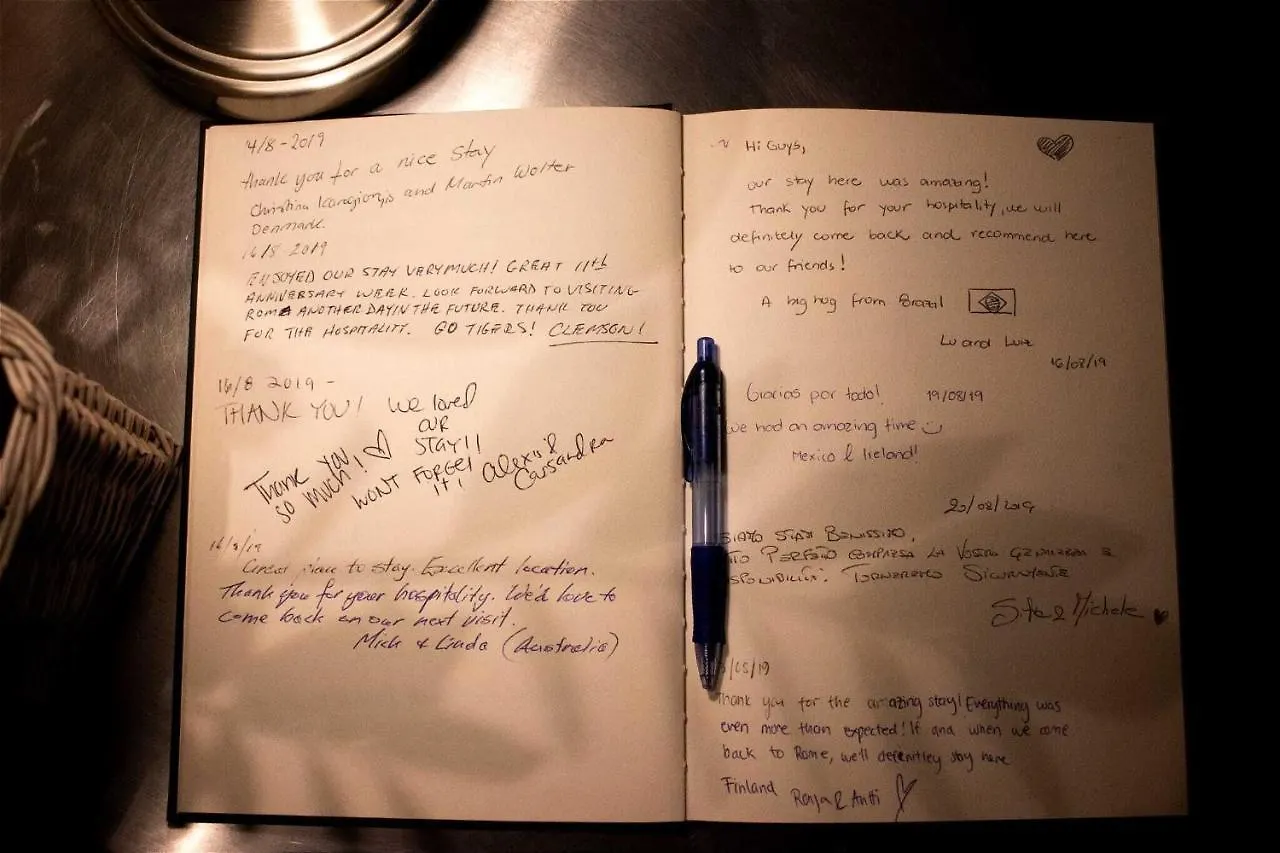 14/8-2019
Thank you for a nice stay
Christina and Martin Wolter
Denmark.
16/8-2019
ENJOYED OUR STAY VERY MUCH! GREAT 11th
ANNIVERSARY WEEK. LOOK FORWARD TO VISITING
ROME ANOTHER DAY IN THE FUTURE. THANK YOU
FOR THE HOSPITALITY. GO TIGERS! CLEMSON!
16/8 2019-
THANK YOU! We loved
OUR
STAY!!
Thank you
so much! WONT FORGET
IT! Alexis &
Cassandra
16/8/19
Great place to stay. Excellent location.
Thank you for your hospitality. We'd love to
come back on our next visit.
Mick & Linda (Australia)
Hi Guys,
our stay here was amazing!
Thank you for your hospitality, we will
definitely come back and recommend here
to our friends!
A big hug from Brazil
Lu and Luiz
16/08/19
Gracias por todo! 19/08/19
We had an amazing time
Mexico & Ireland!
20/08/2019
STATI BENISSIMO,
PERFETTO COMPRESA LA VOSTRA
TORNEREMO SICURAMENTE
& Michele
/05/19
Thank you for the amazing stay! Everything was
even more than expected! If and when we come
back to Rome, we'll definitley stay here
Finland Ronja & Antti